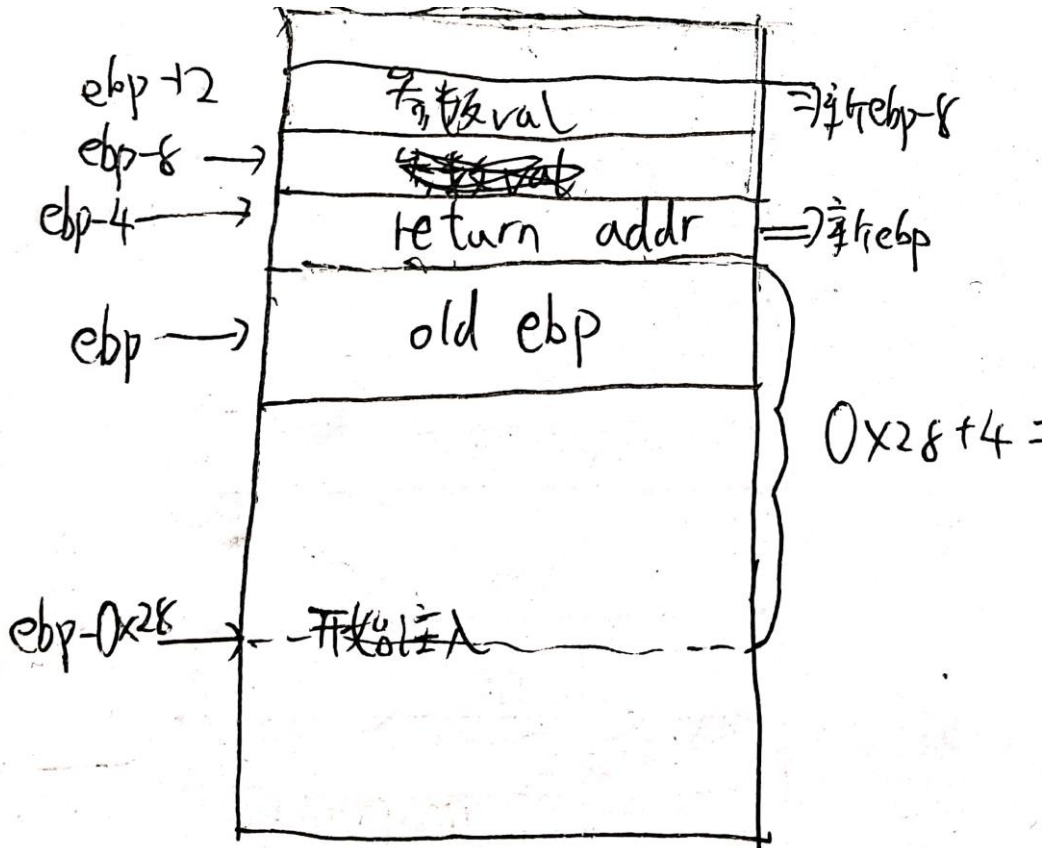 ebp+2
参数val
⇒新ebp-8
ebp-8 →
ebp-4 →
return addr
⇒新ebp
ebp →
old ebp
0x28+4=
ebp-0x28 →
开始注入